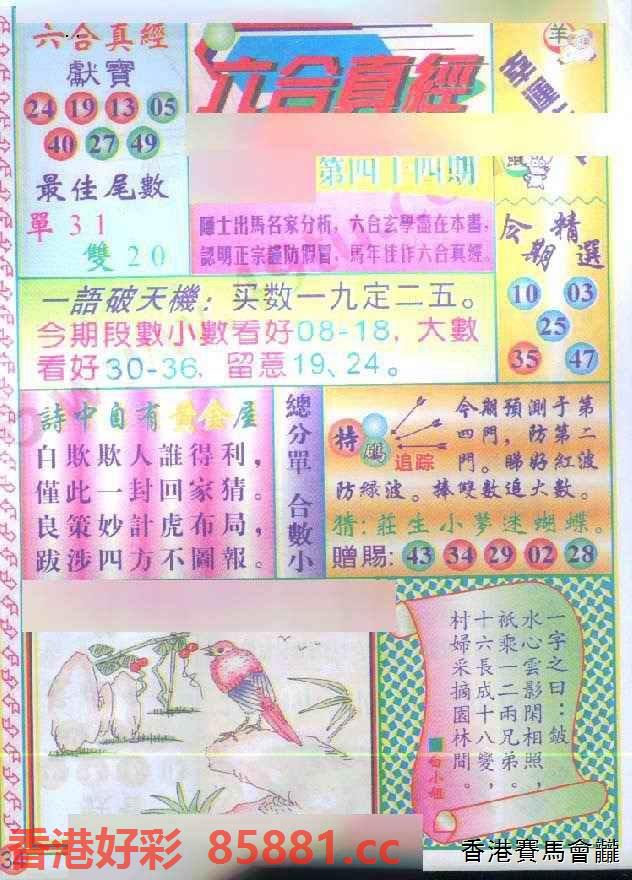 六合真經
獻寶
24 19 13 05
40 27 49
最佳尾數
單 3 1
雙 2 0
六合真經
第四十四期
隱士出馬名家分析，六合玄學盡在本書，
認明正宗謹防假冒，馬年佳作六合真經。
羊
今期精選
10 03
25
35 47
一語破天機：买数一九定二五。
今期段數小數看好08-18，大數
看好30-36，留意19、24。
詩中自有黃金屋
自欺欺人誰得利，
僅此一封回家猜。
良策妙計虎布局，
跋涉四方不圖報。
總分單 合數小
特碼
追踪
今期預測于第
四門，防第二
門。睇好紅波
防綠波。捧雙數追大數。
猜：莊生小夢迷蝴蝶。
贈賜：43 34 29 02 28
一字之曰：皺
水心雲影閑相照，
祇乘一二兩兄弟。
十六長成十八變，
村婦采摘園林間。
白小姐
34
香港好彩 85881.cc
香港賽馬會